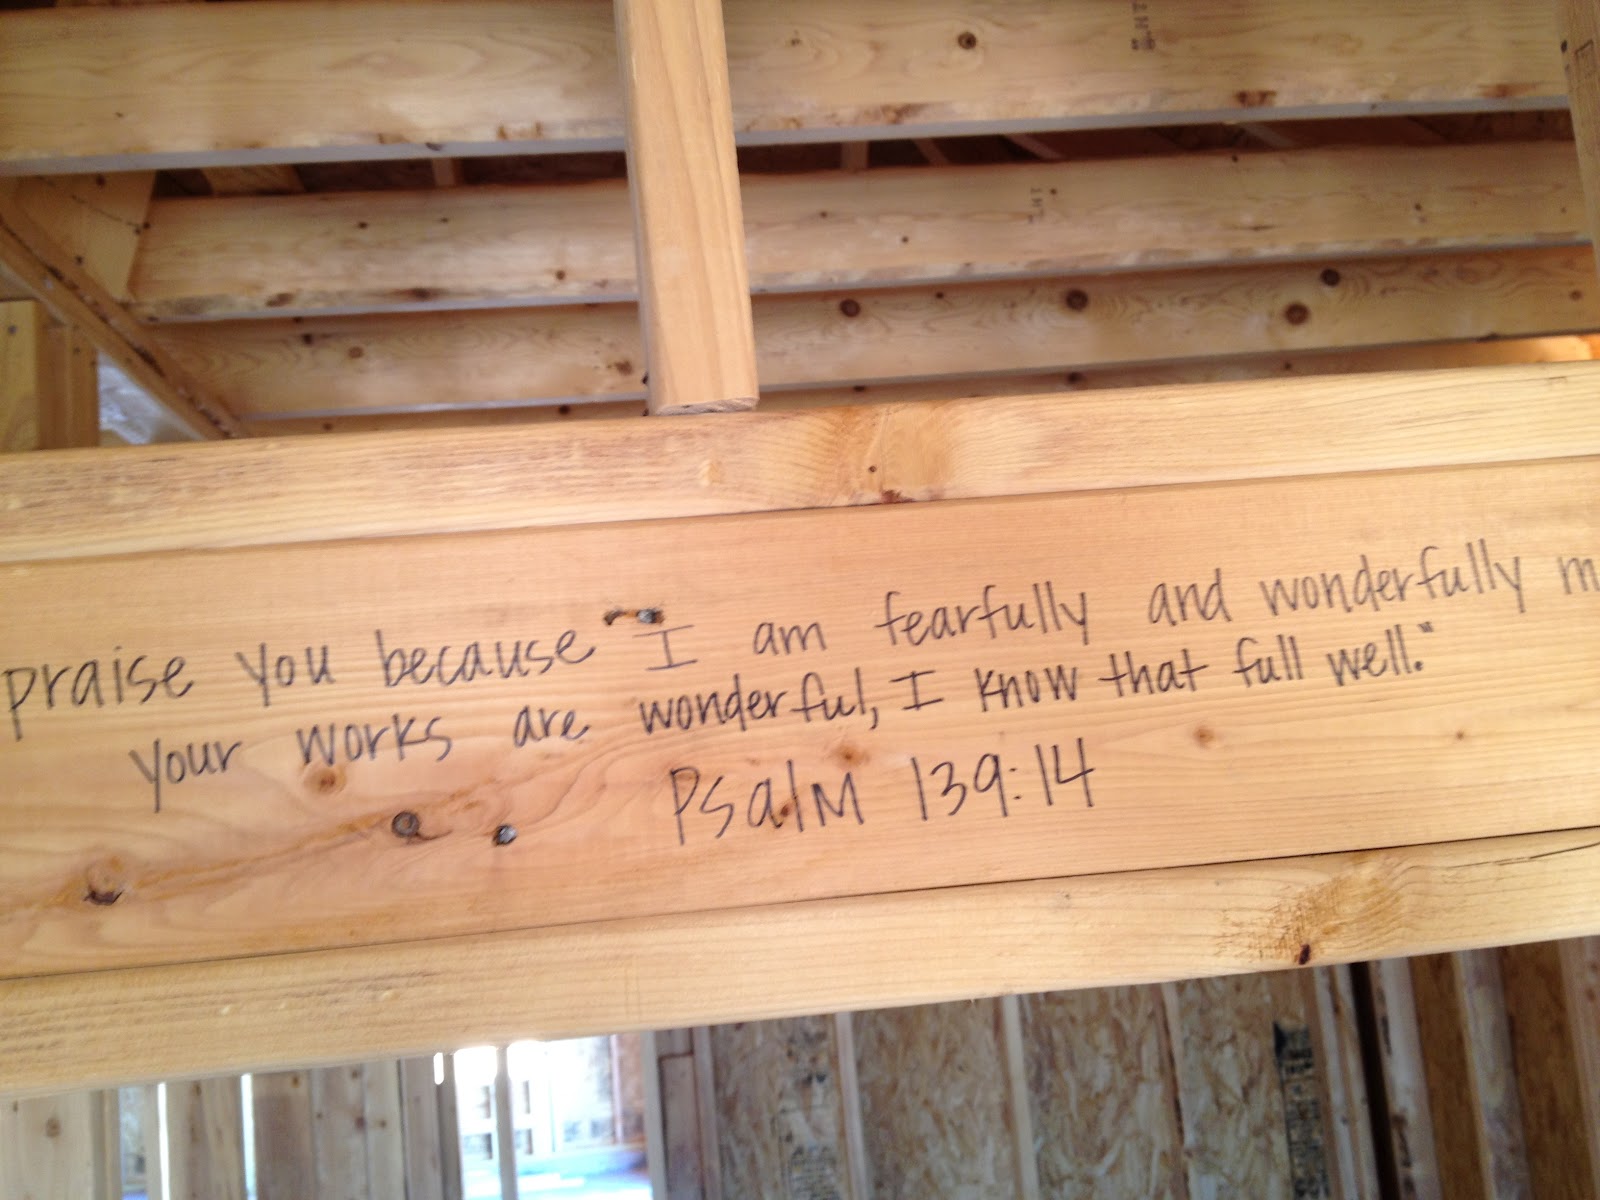 praise You because I am fearfully and wonderfully m
your works are wonderful, I know that full well."
Psalm 139:14